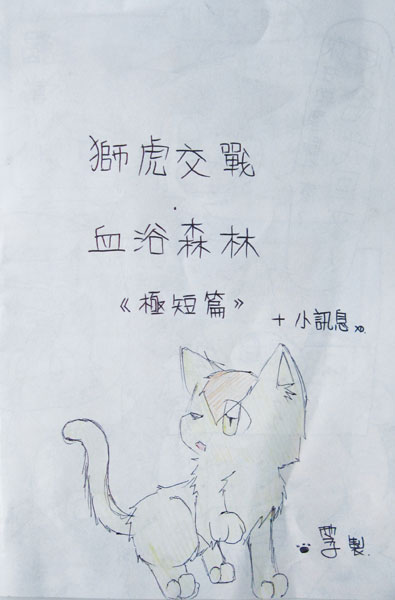 獅虎交戰
血浴森林
《極短篇》
+小訊息 xD.
製.